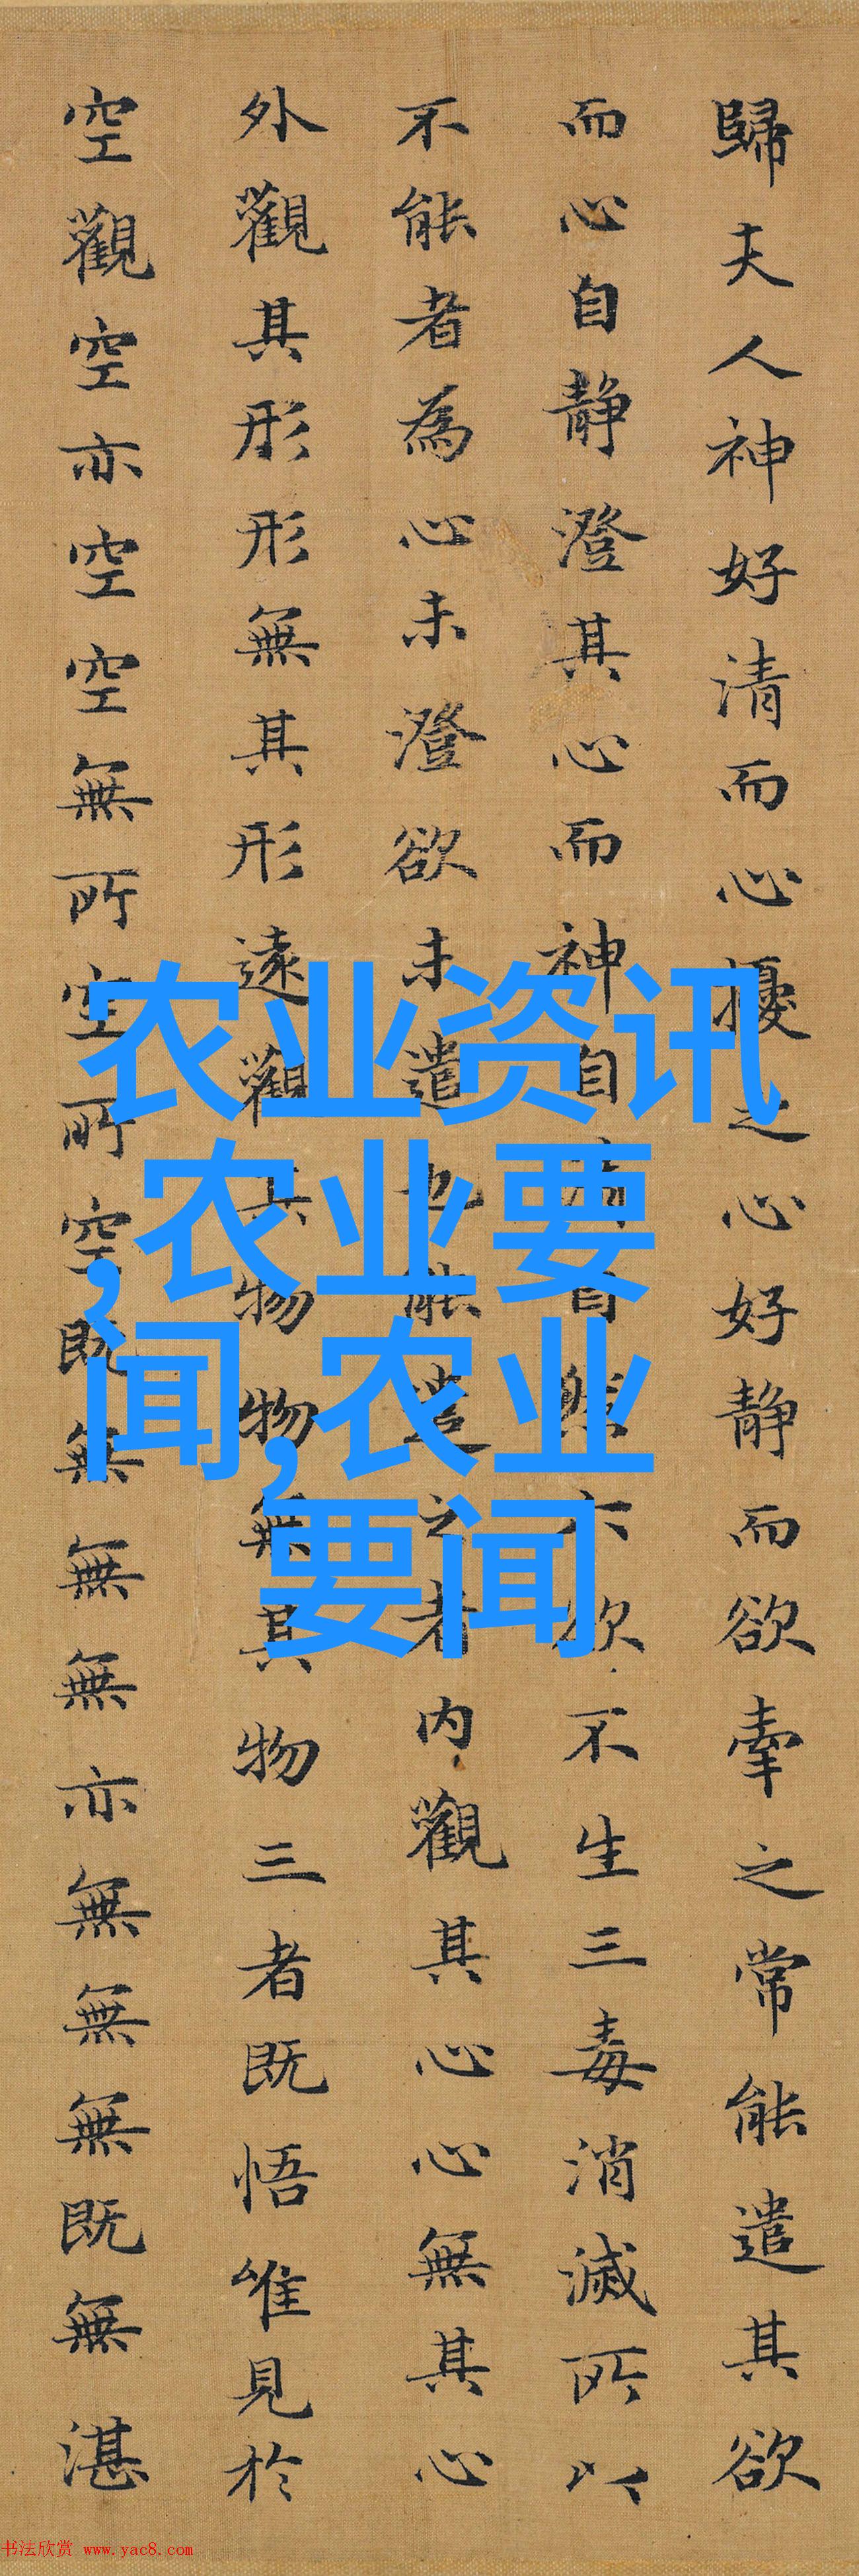 歸夫人神好清而心擾之心好静而欲牽之常能遣其欲
而心自静澄其心而神自自然六欲不生三毒消滅所以
不能者為心未澄欲未遣也能遣之者内觀其心心無其心
外觀其形形無其形遠觀其物物無其物三者既悟唯見於
空觀空亦空空無所空所空既無無無亦無無無既無湛
农业资讯
,农业要
闻,农业
要闻
书法欣赏 www.yac8.com